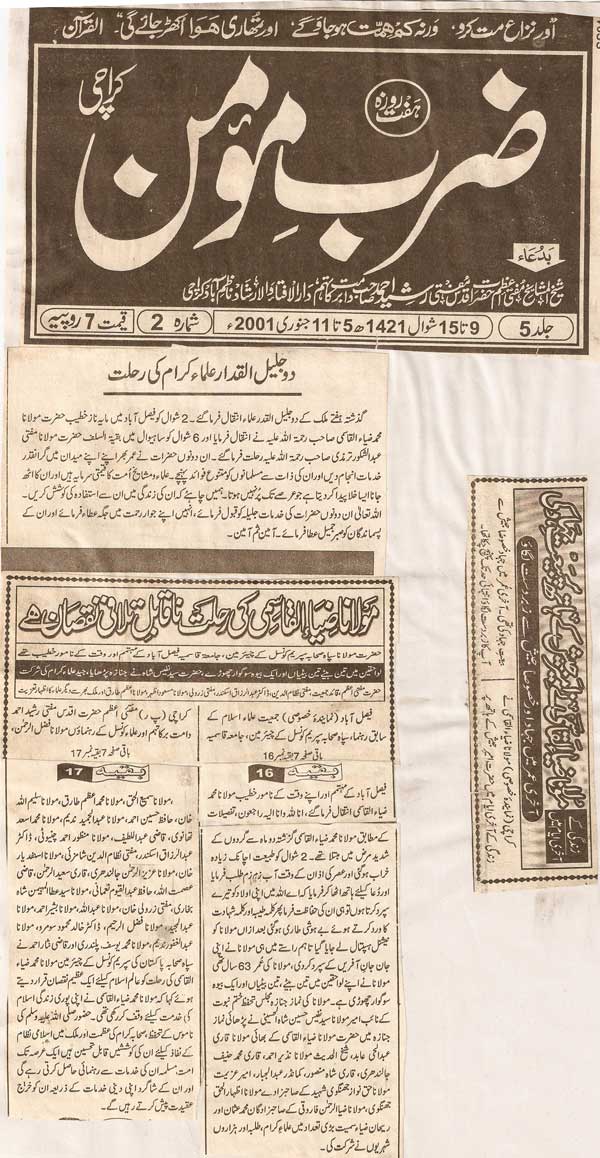 اور نزاع مت کرو، ورنہ کم ہمت ہو جاؤ گے اور تمہاری ہوا اکھڑ جائے گی۔ القرآن
ہفت روزہ
ضرب مؤمن
کراچی
بدعاء
جلد 5
9 تا 15 شوال 1421ھ 5 تا 11 جنوری 2001ء
شمارہ 2
قیمت 7 روپیہ
دو جلیل القدار علماء کرام کی رحلت
گذشتہ ہفتے ملک کے دو جلیل القدر علماء انتقال فرما گئے۔ 2 شوال کو فیصل آباد میں مایہ ناز خطیب حضرت مولانا
محمد ضیاء القاسمی صاحب رحمۃ اللہ علیہ نے انتقال فرمایا اور 6 شوال کو ساہیوال میں بقیۃ السلف حضرت مولانا مفتی
عبدالشکور ترمذی صاحب رحمۃ اللہ علیہ رحلت فرما گئے۔ ان دونوں حضرات نے عمر بھر اپنے اپنے میدان میں گرانقدر
خدمات انجام دیں اور ان کی ذات سے مسلمانوں کو متنوع فوائد پہنچے۔ علماء و مشائخ امت کا قیمتی سرمایہ ہیں اور ان کا اٹھ
جانا ایسا خلا پیدا کر دیتا ہے جو عرصے تک پُر نہیں ہوتا۔ ہمیں چاہئے کہ ان کی زندگی میں ان سے استفادہ کی کوشش کریں۔
اللہ تعالیٰ ان دونوں حضرات کی خدمات جلیلہ کو قبول فرمائے، انہیں اپنے جوار رحمت میں جگہ عطا فرمائے اور ان کے
پسماندگان کو صبر جمیل عطا فرمائے۔ آمین ثم آمین۔
مولانا ضیاء القاسمی کی رحلت ناقابل تلافی نقصان ہے
حضرت مولانا سپاہ صحابہ سپریم کونسل کے چیئرمین، جامعہ قاسمیہ فیصل آباد کے مہتمم اور وقت کے نامور خطیب تھے
لواحقین میں تین بیٹے تین بیٹیاں اور ایک بیوہ سوگوار چھوڑے، حضرت سید نفیس شاہ نے جنازہ پڑھایا، جید علماء کرام کی شرکت
فیصل آباد (نمائندہ خصوصی) جمعیت علماء اسلام کے
سابق رہنما، سپاہ صحابہ سپریم کونسل کے چیئرمین، جامعہ قاسمیہ
باقی صفحہ 7 بقیہ نمبر 16
کراچی (پ ر) مفتی اعظم حضرت اقدس مفتی رشید احمد
دامت برکاتہم اور علماء کونسل کے رہنماؤں مولانا فضل الرحمٰن،
باقی صفحہ 7 بقیہ نمبر 17
بقیہ 16
فیصل آباد کے مہتمم اور اپنے وقت کے نامور خطیب مولانا محمد
ضیاء القاسمی انتقال فرما گئے، اناللہ وانا الیہ راجعون، تفصیلات
کے مطابق مولانا محمد ضیاء القاسمی گزشتہ دو ماہ سے گردوں کے
شدید مرض میں مبتلا تھے۔ 2 شوال کو طبیعت اچانک زیادہ
خراب ہو گئی اور عصر کی اذان کے وقت آب زم زم طلب فرمایا
اور دعا کیلئے ہاتھ اٹھا کر فرمایا کہ اے اللہ میں اپنی اولاد کو تیرے
سپرد کرتا ہوں تو ہی ان کی حفاظت فرما پھر کلمہ طیبہ اور کلمہ شہادت
کا ورد کرتے ہوئے بے ہوشی طاری ہو گئی بعد ازاں مولانا کو
نیشنل ہسپتال لے جایا گیا تاہم راستے میں ہی مولانا نے اپنی
جان جان آفریں کے سپرد کر دی، مولانا کی عمر 63 سال تھی
مولانا نے اپنے لواحقین میں تین بیٹے، تین بیٹیاں اور ایک بیوہ
سوگوار چھوڑی ہے۔ مولانا کی نماز جنازہ مجلس تحفظ ختم نبوت
کے نائب امیر مولانا سید نفیس حسین شاہ الحسینی نے پڑھائی نماز
جنازہ میں مولانا ضیاء القاسمی کے بھائی مولانا قاری
عبدالحی عابد، شیخ الحدیث مولانا نذیر احمد، قاری محمد حنیف
جالندھری، قاری شاہ منصور، کمانڈر عبدالجبار، امیر عزیمت
مولانا حق نواز جھنگوی شہید کے صاحبزادے مولانا اظہار الحق
جھنگوی، مولانا ضیاء الرحمٰن فاروقی کے صاحبزادگان محمد عثمان اور
ریحان ضیاء سمیت بڑی تعداد میں علماء کرام، طلبہ اور ہزاروں
شہریوں نے شرکت کی۔
بقیہ 17
مولانا سمیع الحق، مولانا محمد اعظم طارق، مولانا سلیم اللہ
خان، حافظ حسین احمد، مولانا عبدالمجید ندیم، مولانا اسعد
تھانوی، قاضی عبداللطیف، مولانا منظور احمد چنیوٹی، ڈاکٹر
عبدالرزاق اسکندر، مفتی نظام الدین شامزئی، مولانا اسفندیار
خان، مولانا عزیز الرحمٰن جالندھری، قاری سعید الرحمٰن، قاضی
عصمت اللہ، حافظ عبدالقیوم نعمانی، مولانا سید عطاء المہیمن شاہ
بخاری، مفتی زرولی خان، مولانا عبداللہ، مولانا بشیر احمد، مولانا
عبدالمجید، مولانا فضل الرحیم، ڈاکٹر خالد محمود سومرو، مولانا
عبدالغفور ندیم، مولانا محمد یوسف پلندری اور قاضی نثار احمد نے
سپاہ صحابہ پاکستان کی سپریم کونسل کے چیئرمین مولانا محمد ضیاء
القاسمی کی رحلت کو عالم اسلام کیلئے ایک عظیم نقصان قرار دیتے
ہوئے کہا کہ مولانا محمد ضیاء القاسمی نے اپنی پوری زندگی اسلام
کی خدمت کیلئے وقف کر رکھی تھی۔ حضور صلی اللہ علیہ وسلم کی
ناموس کے تحفظ، صحابہ کرام کی عظمت اور ملک میں اسلامی نظام
کے نفاذ کیلئے ان کی کوششیں قابل تحسین ہیں ایک عرصہ تک
امت مسلمہ ان کی خدمات سے رہنمائی حاصل کرتی رہے گی
اور ان کے شاگرد اپنی دینی خدمات کے ذریعہ ان کو خراج
عقیدت پیش کرتے رہیں گے۔
آخری عمر میں جہاد اور خصوصاً جیش سے زبردست لگاؤ
کراچی (نمائندہ خصوصی) مولانا ضیاء القاسمی نے